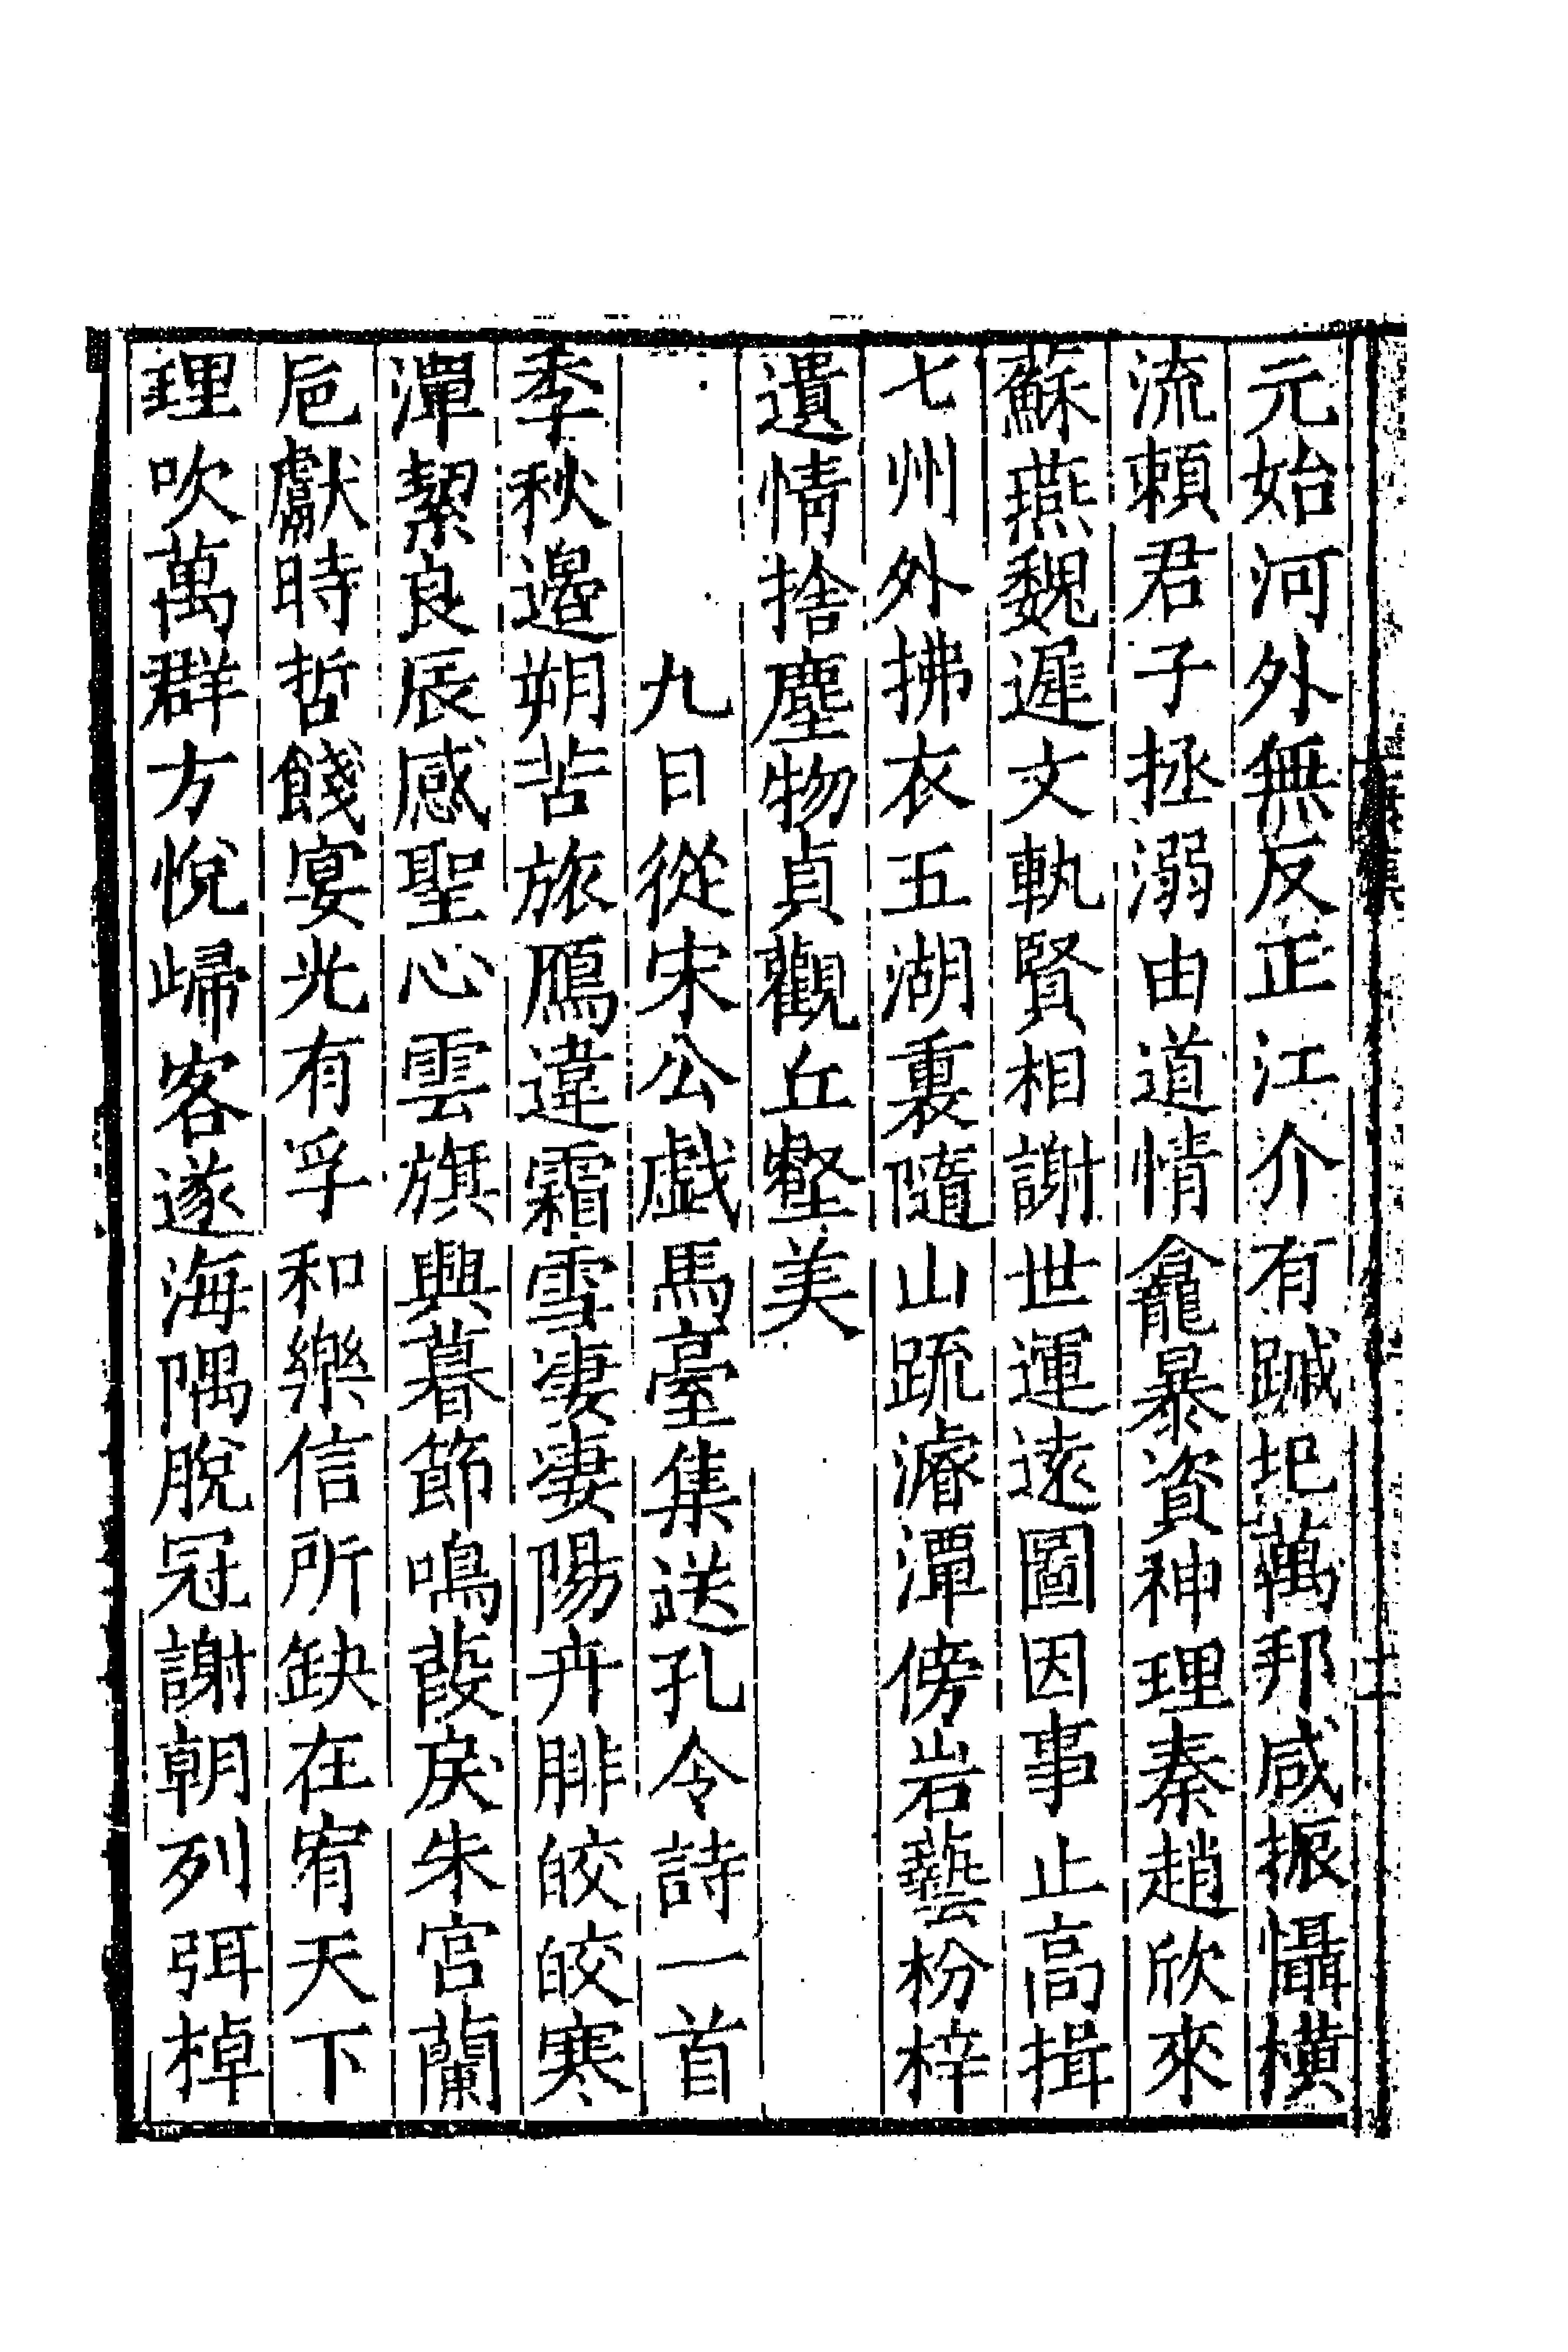 元始河外無反正江介有蹴圯萬邦咸振懾橫
流賴君子拯溺由道情龕暴資神理秦趙欣來
蘇燕魏遲文軌賢相謝世運遠圖因事止高揖
七州外拂衣五湖裏隨山疏濬潭傍岩藝枌梓
遺情捨塵物貞觀丘壑美
九日從宋公戯馬臺集送孔令詩一首
季秋邊朔苦旅鴈違霜雪淒淒陽卉腓皎皎寒
潭絜良辰感聖心雲旗興暮節鳴葭戾朱宮蘭
巵獻時哲餞宴光有孚和樂信所缺在宥天下
理吹萬群方悅歸客遂海隅脫冠謝朝列弭棹